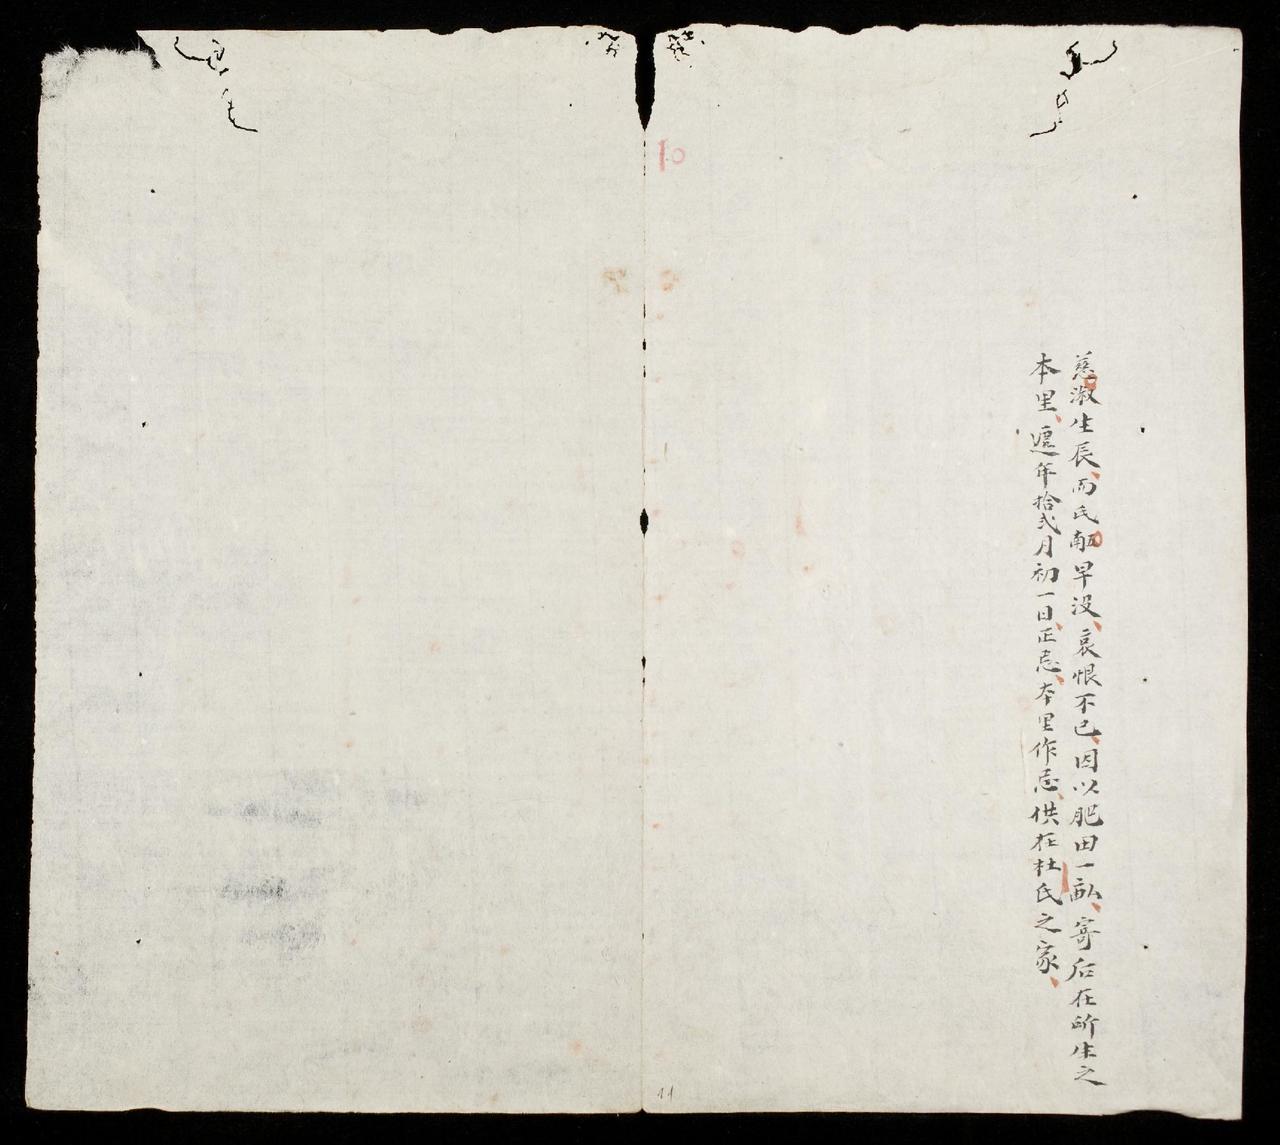 慈淑生辰而氏𫽄早没哀恨不已因以肥田一畝寄后在所生之
本里遞年拾弍月初一日正忌本里作忌供在杜氏之家
11